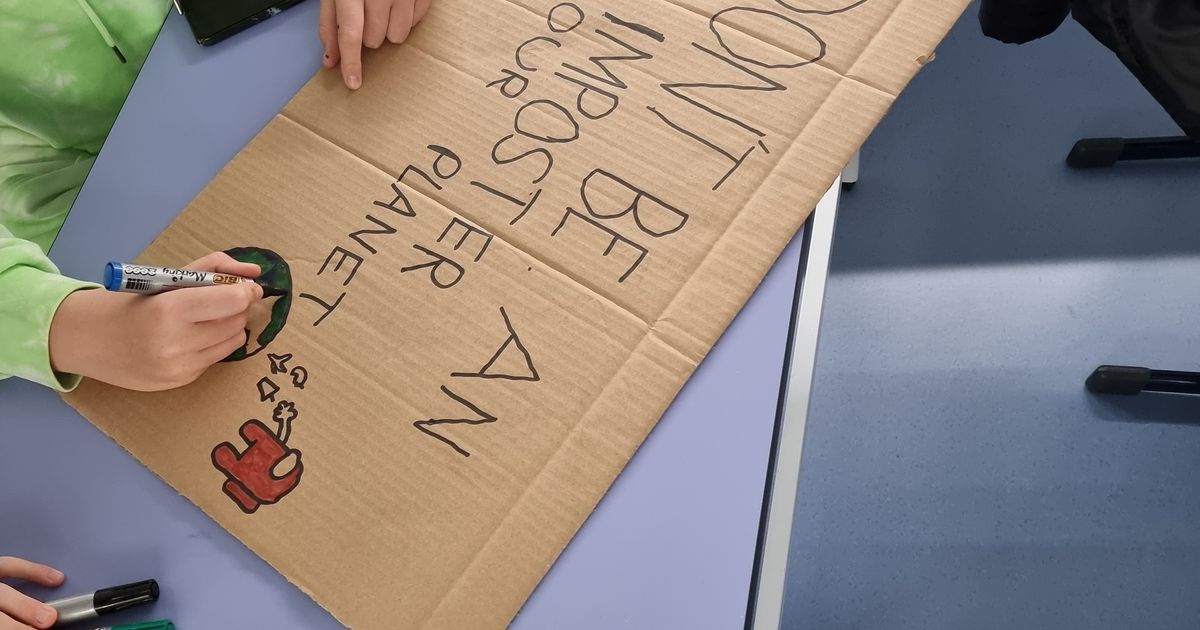 DON'T BE AN
IMPOSTER
OUR PLANET
BIC Marking 2000